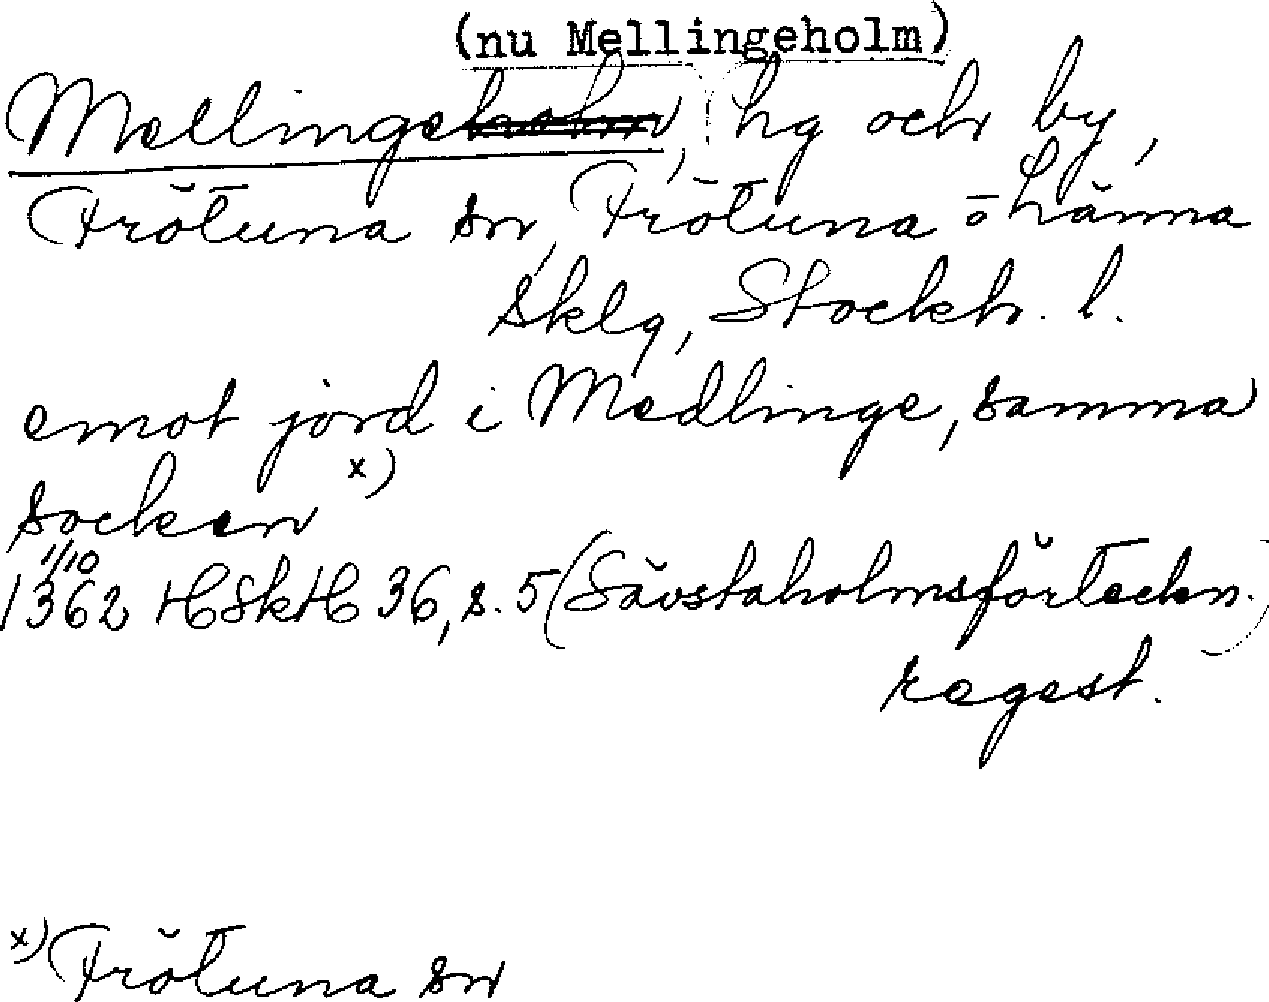 (nu Mellingeholm)
Mellingeholm, hg och by,
Frötuna sn, Frötuna o Länna
sklg, Stockh. l.
emot jord i Medlinge, samma
socken x)
1/10
1362 HSkH 36, s. 5 (Sävstaholmsförteckn.)
regest.
x) Frötuna sn